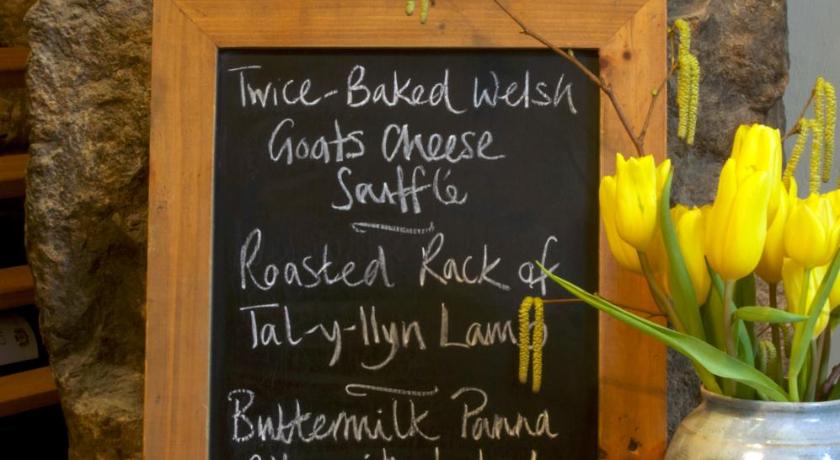 Twice-Baked Welsh
Goats Cheese
Soufflé
Roasted Rack of
Tal-y-llyn Lamb
Buttermilk Panna